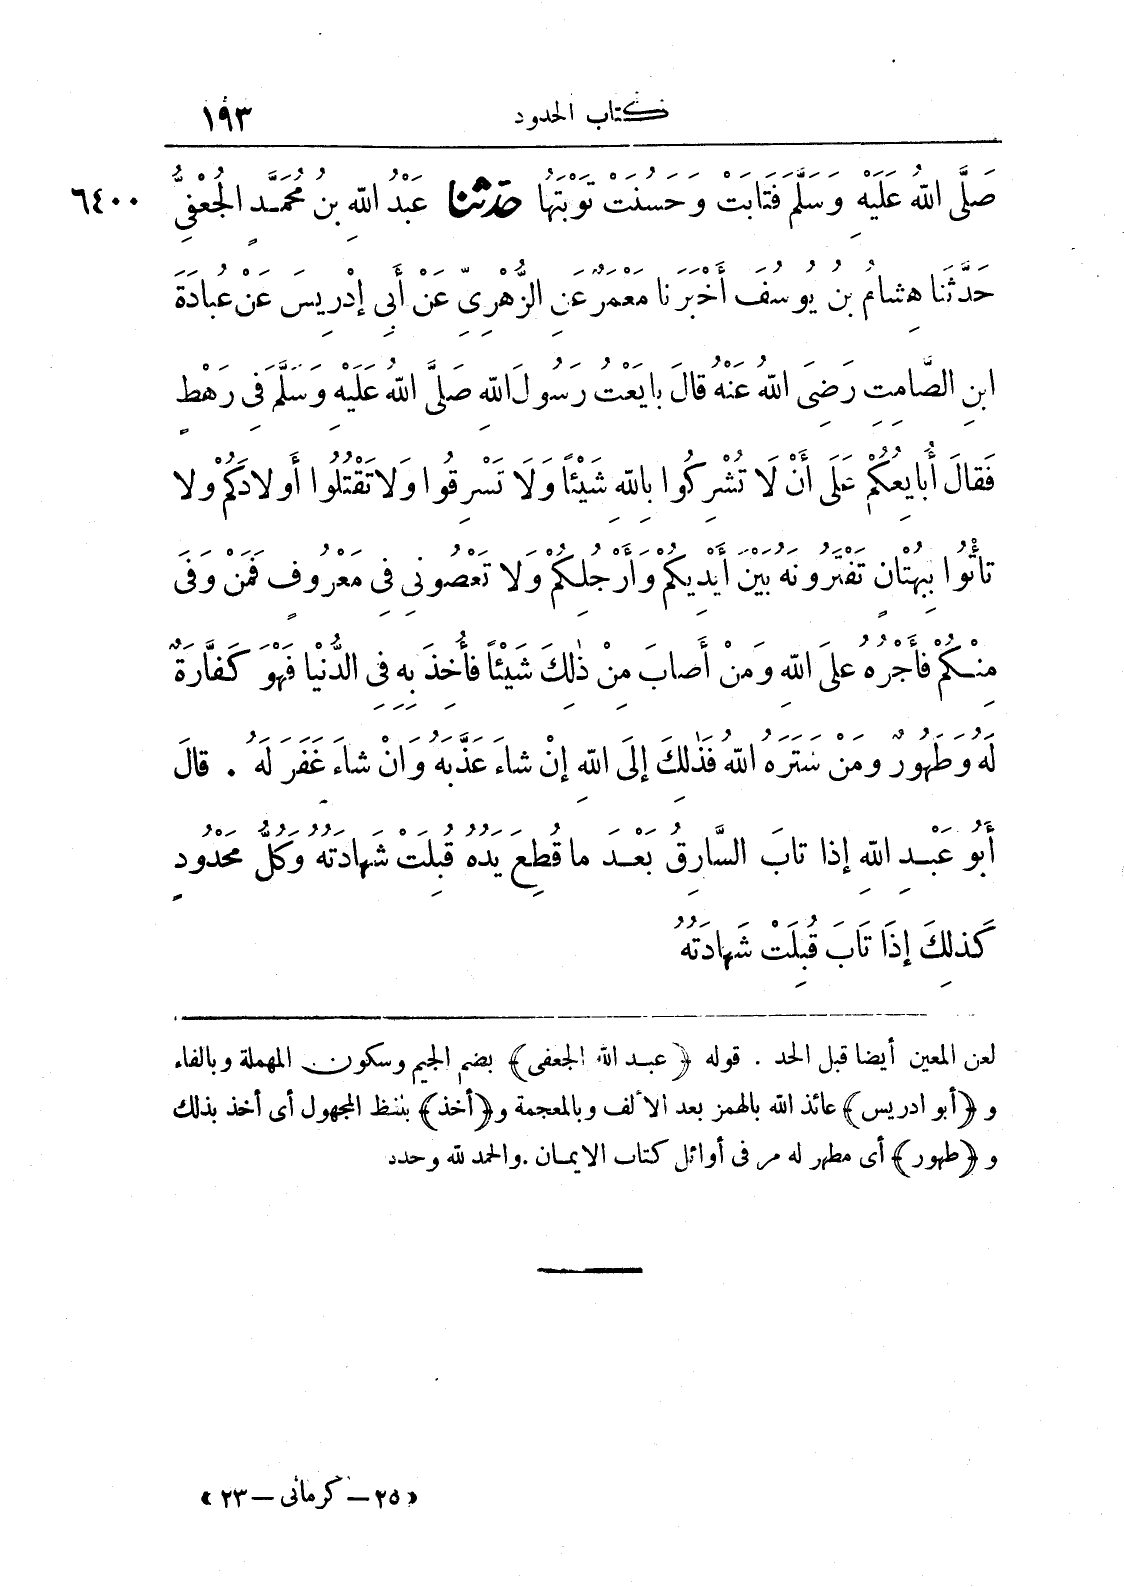 كتاب الحدود ١٩٣
صَلَّى اللهُ عَلَيْهِ وَسَلَّمَ فَتَابَتْ وَحَسُنَتْ تَوْبَتُهَا حَدَّثَنَا عَبْدُ اللهِ بنُ مُحَمَّدٍ الْجُعْفِيُّ ٦٤٠٠
حَدَّثَنا هِشامُ بنُ يُوسُفَ أَخْبَرَنا مَعْمَرٌ عَنِ الزُّهْرِيِّ عَنْ أَبِي إدْرِيسَ عَن عُبادَةَ
ابنِ الصَّامِتِ رَضِيَ اللهُ عَنْهُ قالَ بايَعْتُ رَسُولَ اللهِ صَلَّى اللهُ عَلَيْهِ وَسَلَّمَ فِى رَهْطٍ
فَقالَ أُبايِعُكُمْ عَلَى أَنْ لَا تُشْرِكُوا بِاللهِ شَيْئاً وَلَا تَسْرِقُوا وَلا تَقْتُلُوا أَولادَكُمْ ولا
تأْتُوا بِبُهْتانٍ تَفْتَرُونَهُ بَيْنَ أَيْدِيكُمْ وَأَرْجُلِكُمْ ولا تَعْصُونِى فِى مَعْرُوفٍ فَمَنْ وَفَى
مِنْكُمْ فأَجْرُهُ عَلىَ اللهِ وَمَنْ أَصابَ مِنْ ذٰلِكَ شَيْئاً فأُخِذَ بِهِ فِى الدُّنْيا فَهْوَ كَفَّارَةٌ
لَهُ وَطَهُورٌ وَمَنْ سَتَرَهُ اللهُ فَذٰلِكَ إِلَى اللهِ إنْ شاءَ عَذَّبَهُ وَانْ شاءَ غَفَرَ لَهُ . قالَ
أَبُو عَبْدِ اللهِ إذا تابَ السَّارِقُ بَعْدَ ما قُطِعَ يَدُهُ قُبِلَتْ شَهادَتُهُ وَكُلُّ مَحْدُودٍ
كَذلِكَ إذَا تَابَ قُبِلَتْ شَهادَتُهُ
لعن المعين أيضا قبل الحد . قوله ﴿عبد الله الجعفى﴾ بضم الجيم وسكون المهملة وبالفاء
و ﴿أبو ادريس﴾ عائذ الله بالهمز بعد الألف وبالمعجمة و﴿أخذ﴾ بلفظ المجهول أى أخذ بذلك
و ﴿طهور﴾ أى مطهر له مر فى أوائل كتاب الايمان . والحمد لله وحده
« ٢٥ – كرمانى – ٢٣ »